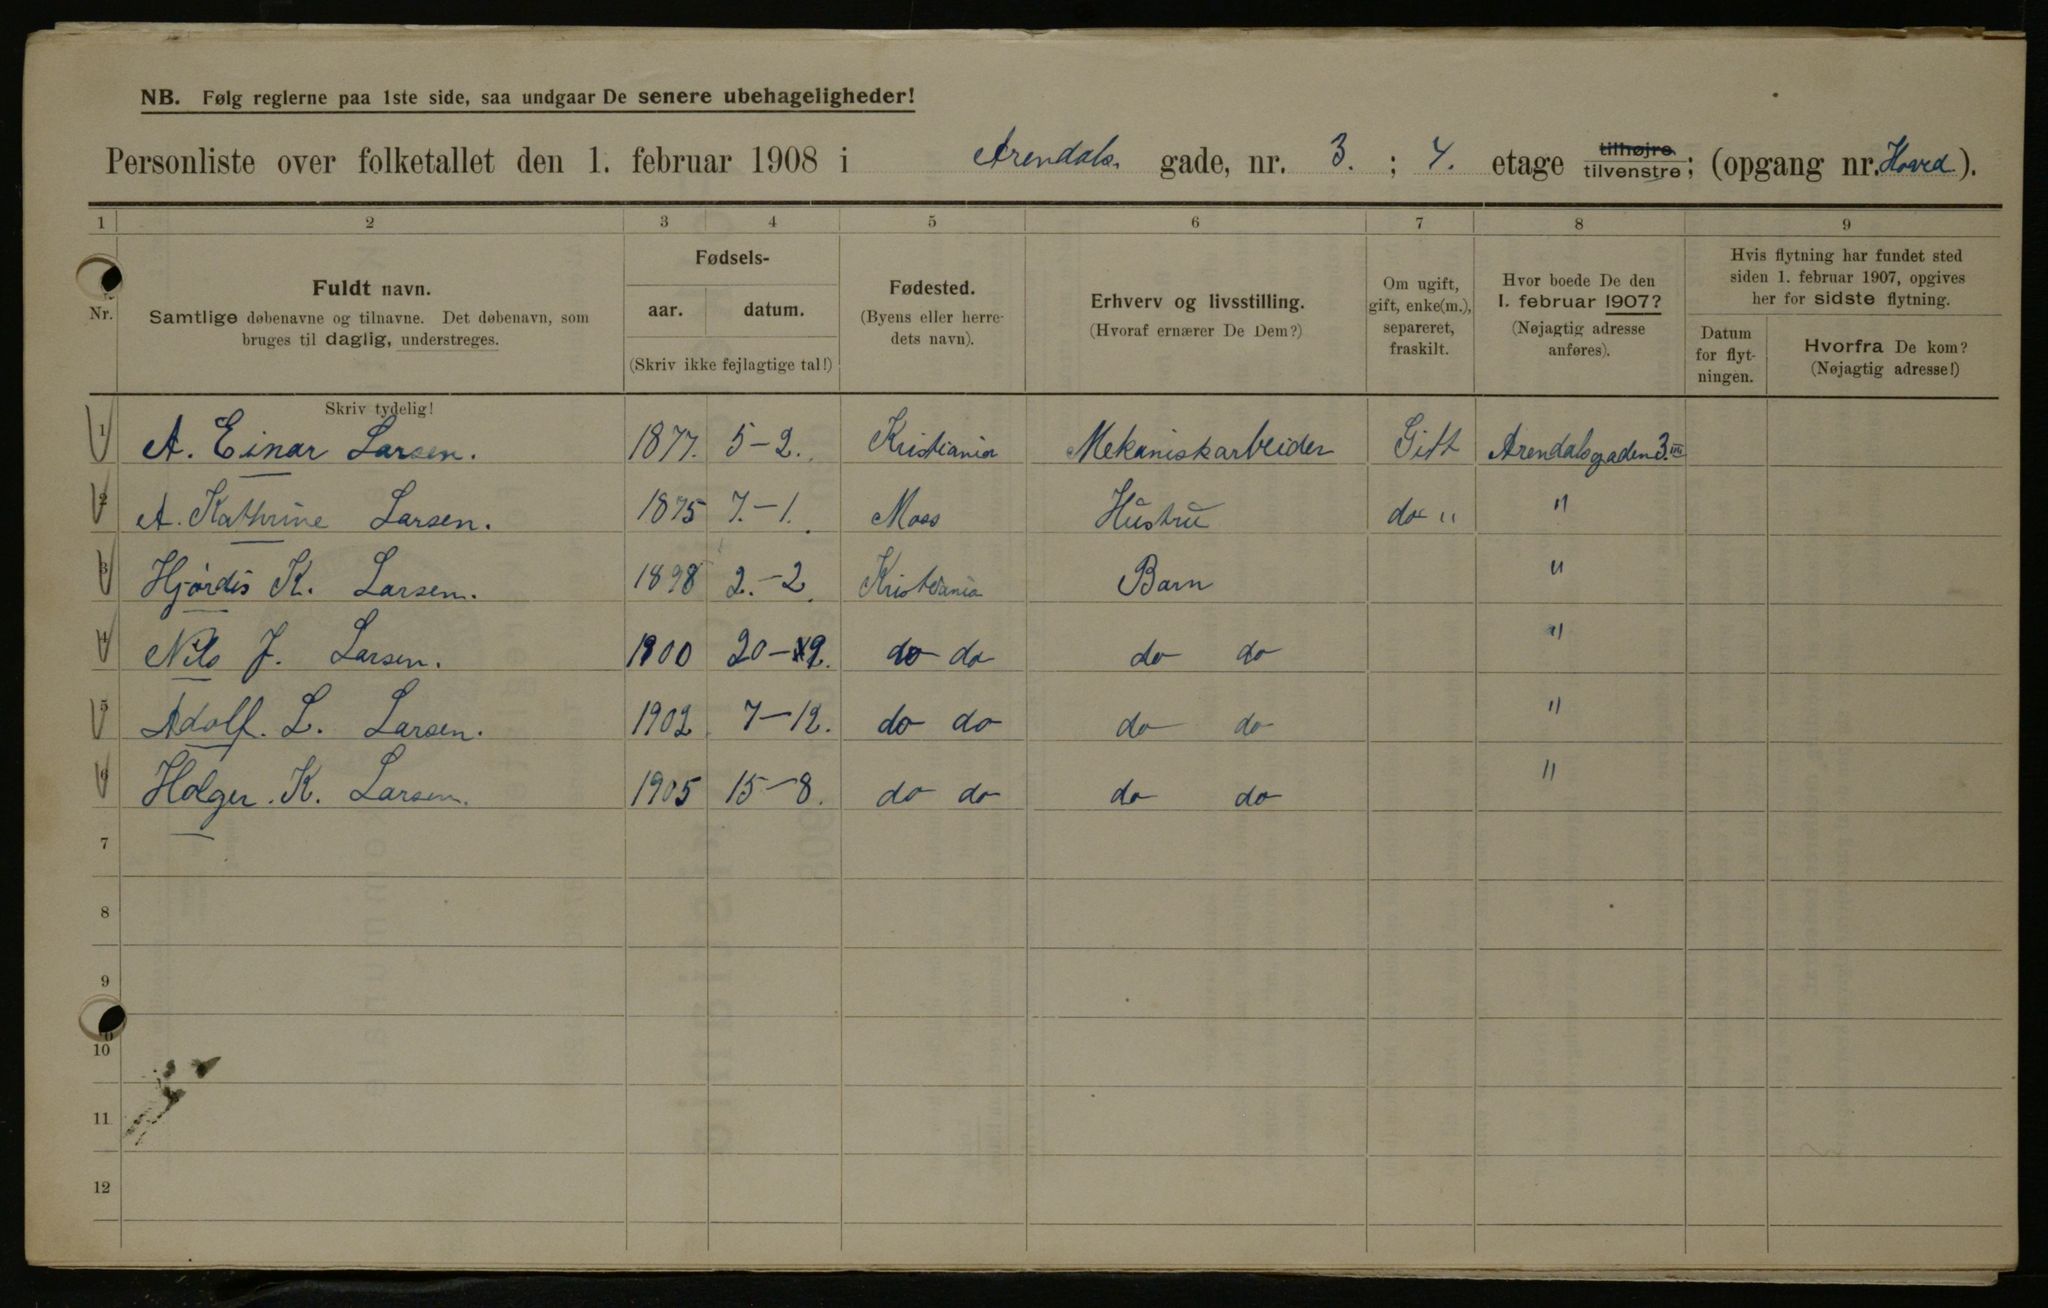 NB. Følg reglerne paa 1ste side, saa undgaar De senere ubehageligheder!
Personliste over folketallet den 1. februar 1908 i Arendals. gade, nr. 3. ; 4. etage tilhøjre tilvenstre; (opgang nr. Hoved).
1 2 3 4 5 6 7 8 9
Nr.
Fuldt navn.
Samtlige døbenavne og tilnavne. Det døbenavn, som
bruges til daglig, understreges.
Skriv tydelig!
Fødsels-
aar. datum.
(Skriv ikke fejlagtige tal!)
Fødested.
(Byens eller herre-
dets navn).
Erhverv og livsstilling.
(Hvoraf ernærer De Dem?)
Om ugift,
gift, enke(m.),
separeret,
fraskilt.
Hvor boede De den
1. februar 1907?
(Nøjagtig adresse
anføres).
Hvis flytning har fundet sted
siden 1. februar 1907, opgives
her for sidste flytning.
Datum
for flyt-
ningen.
Hvorfra De kom?
(Nøjagtig adresse!)
1 A. Einar Larsen. 1877. 5-2. Kristiania Mekaniskarbeider Gift Arendalsgaden 3 III
2 A. Kathrine Larsen. 1875 7.-1. Moss Hustru do " "
3 Hjørdis K. Larsen. 1898 2.-2. Kristiania Barn "
4 Nils J. Larsen. 1900 20- do do do do "
5 Adolf. L. Larsen. 1902 7-12. do do do do "
6 Holger. K. Larsen. 1905 15-8. do do do do "
7
8
9
10
11
12